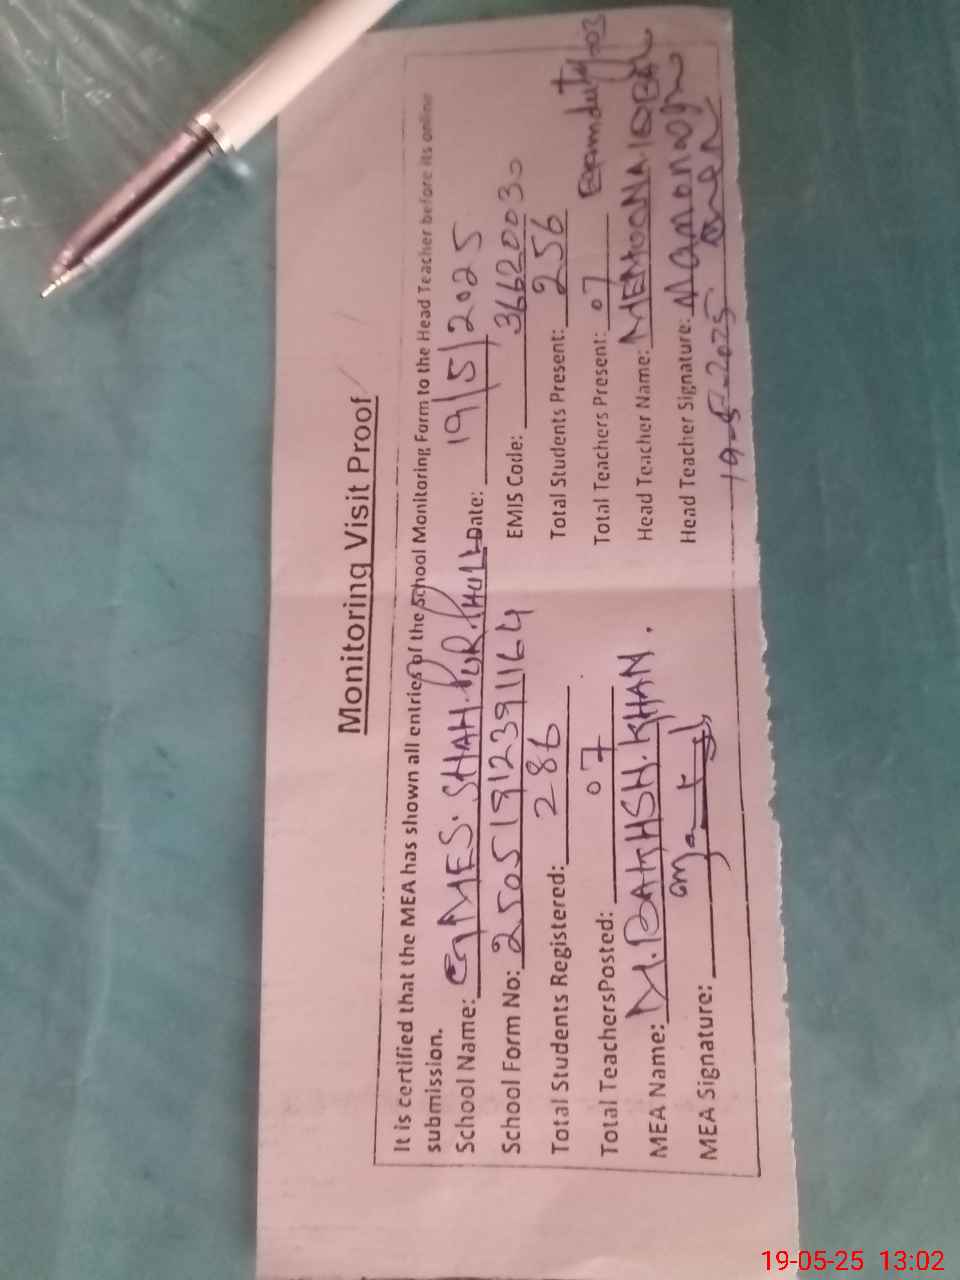 Monitoring Visit Proof
It is certified that the MEA has shown all entries of the School Monitoring Form to the Head Teacher before its online
submission.
School Name: GMES. SHAH. PUR. PHULL Date: 19/5/2025
School Form No: 25051912391164 EMIS Code: 36620030
Total Students Registered: 286 Total Students Present: 256
Total TeachersPosted: 07 Total Teachers Present: 07 Exam duty 03
MEA Name: M. BAKHSH. KHAN. Head Teacher Name: MEMOONA IQBAL
MEA Signature: Head Teacher Signature:
19-5-2025
19-05-25 13:02